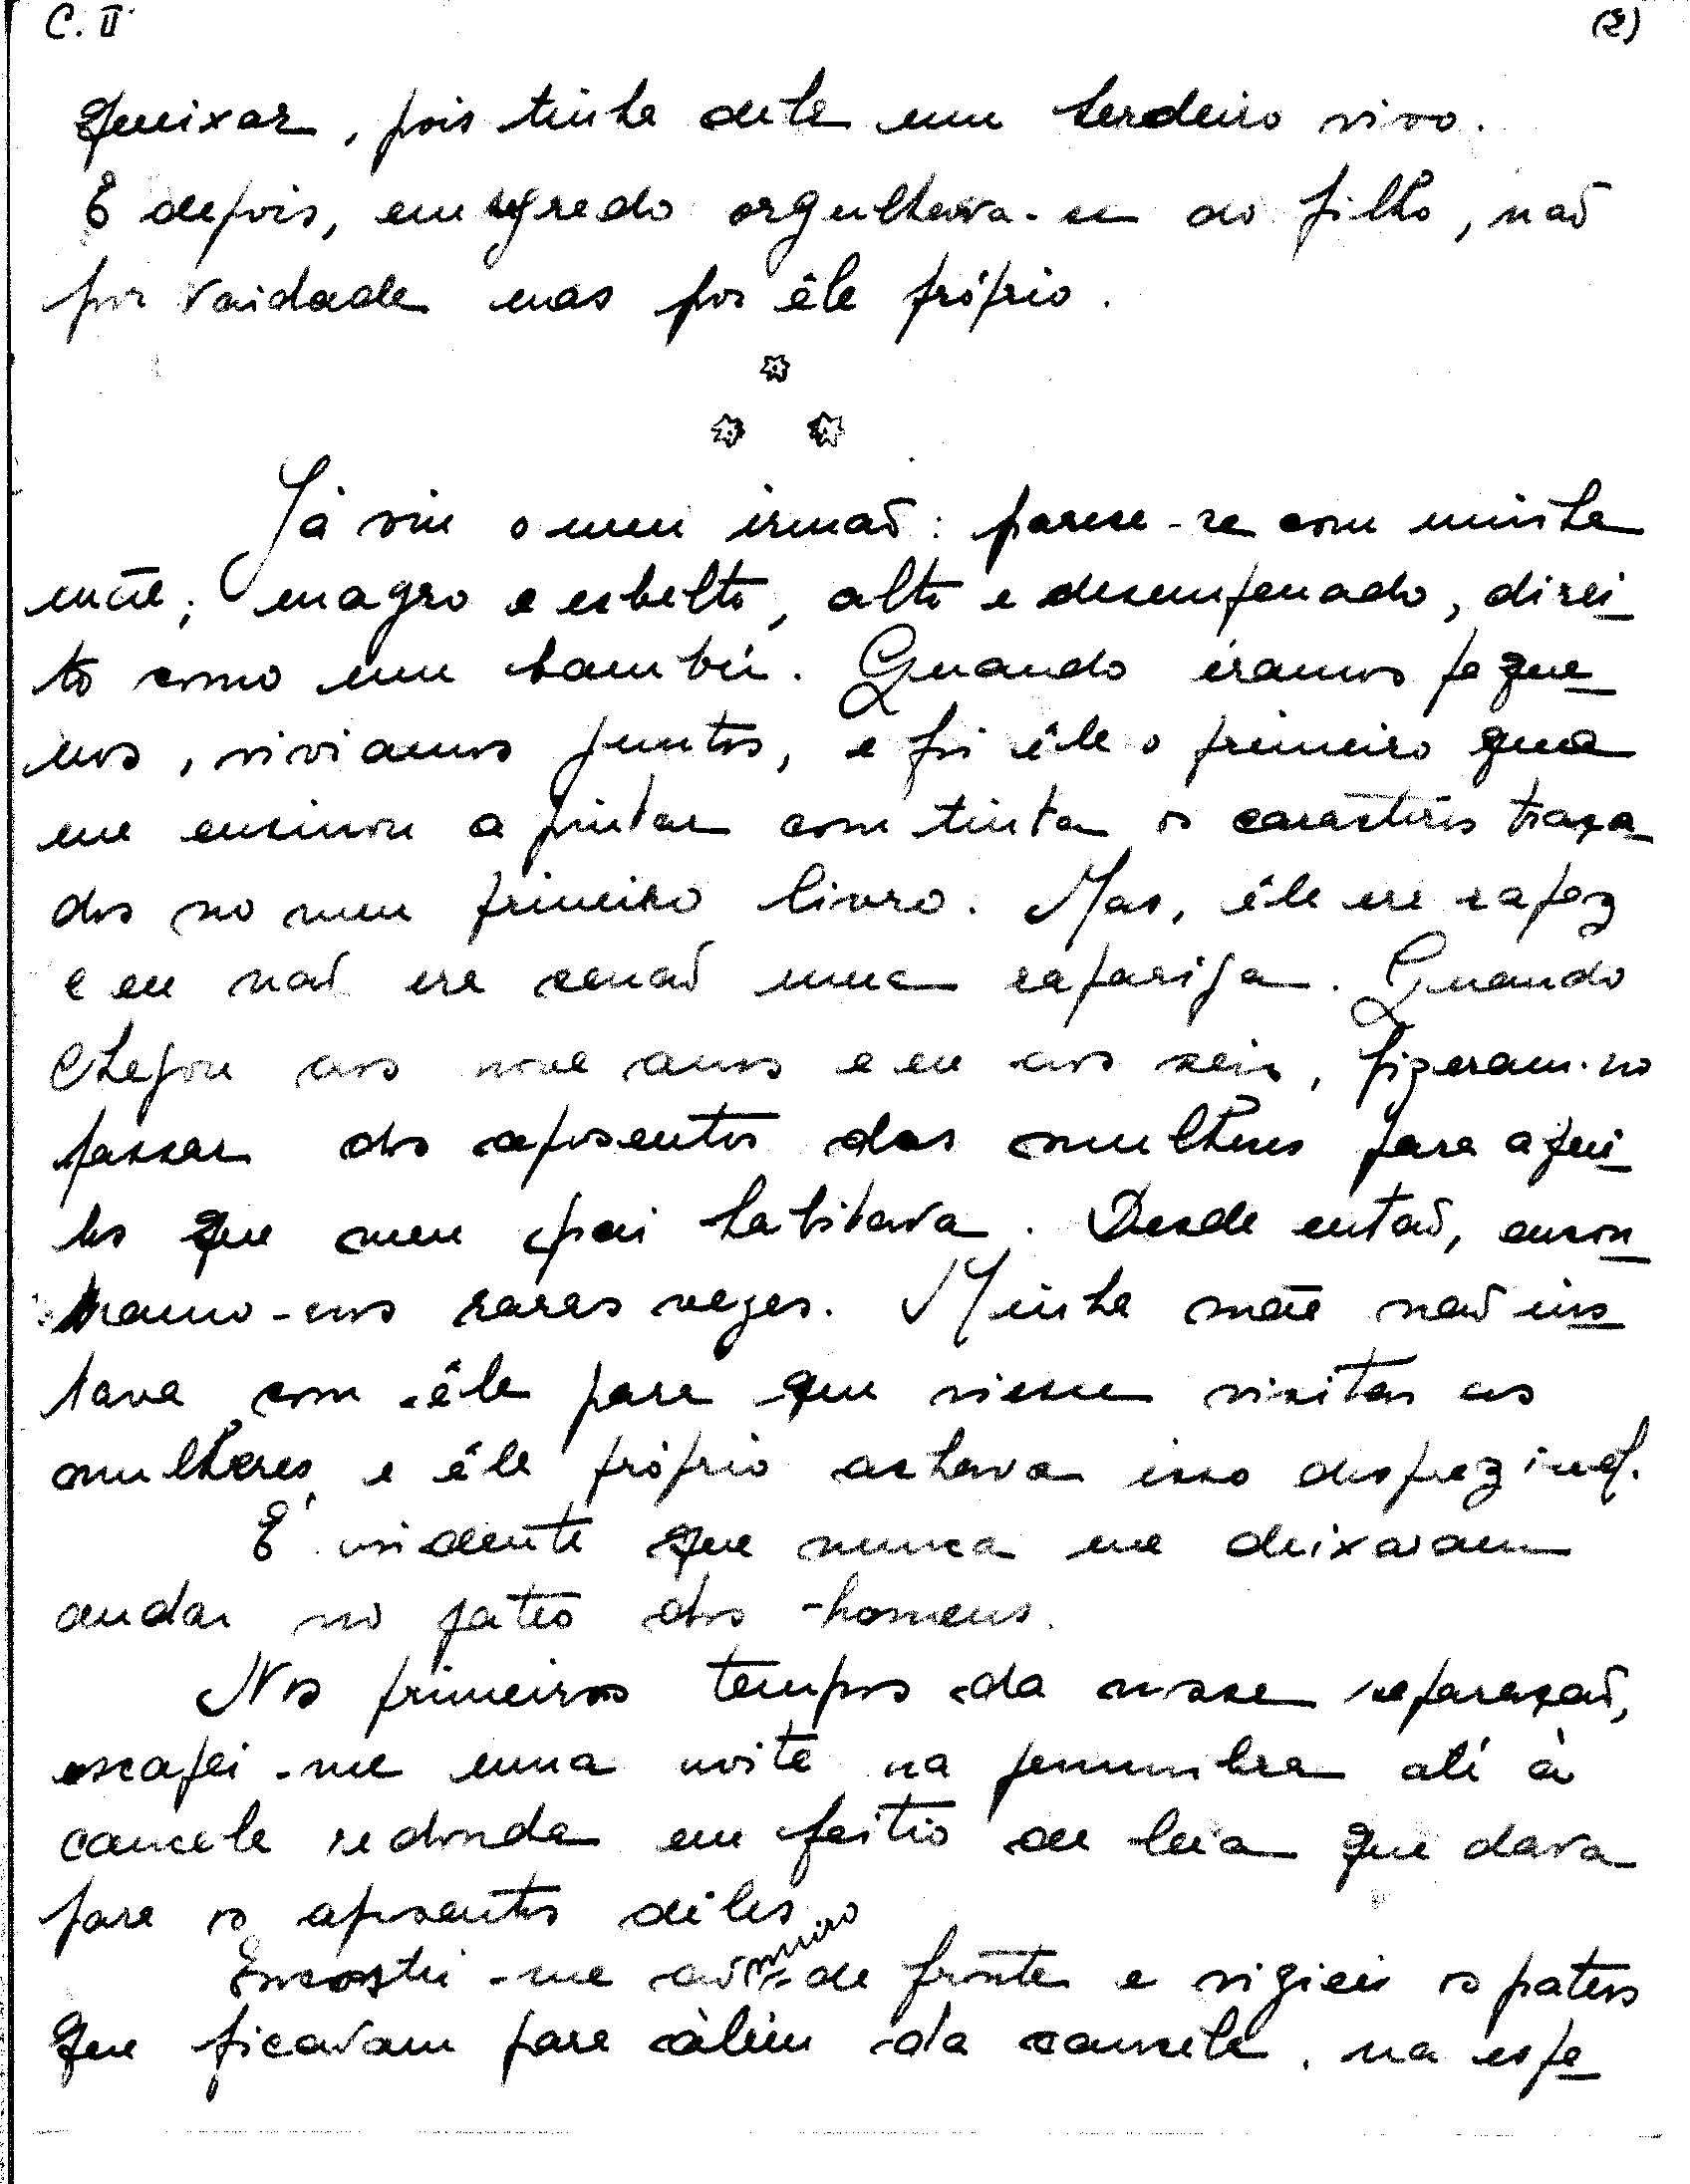 C. II (2)
queixar, pois tinha dele um herdeiro vivo.
E depois, em segredo orgulhava-se do filho, não
por vaidade mas por êle próprio.
* * *
Já vi o meu irmão: parece-se com minha
mãe; magro e esbelto, alto e desempenado, direi-
to como um bambú. Quando éramos peque-
nos, viviamos juntos, e foi êle o primeiro que
me ensinou a pintar com tinta os caractéres traça
dos no meu primeiro livro. Mas, êle era rapaz
e eu não era senão uma rapariga. Quando
chegou aos nove anos e eu aos seis, fizeram-no
passar dos aposentos das mulheres para aque-
les que meu pai habitava. Desde então, encon-
tramo-nos raras vezes. Minha mãe não ins-
tava com êle para que viesse visitar as
mulheres, e êle próprio achava isso desprezivel.
É evidente que nunca me deixaram
andar no pateo dos homens.
Nos primeiros tempos da nossa separação,
escapei-me uma noite na penumbra até à
cancela redonda em feitio de lua que dava
para os aposentos dêles.
Encostei-me ao muro de fronte e vigiei os pateos
que ficavam para àlém da cancela, na espe-